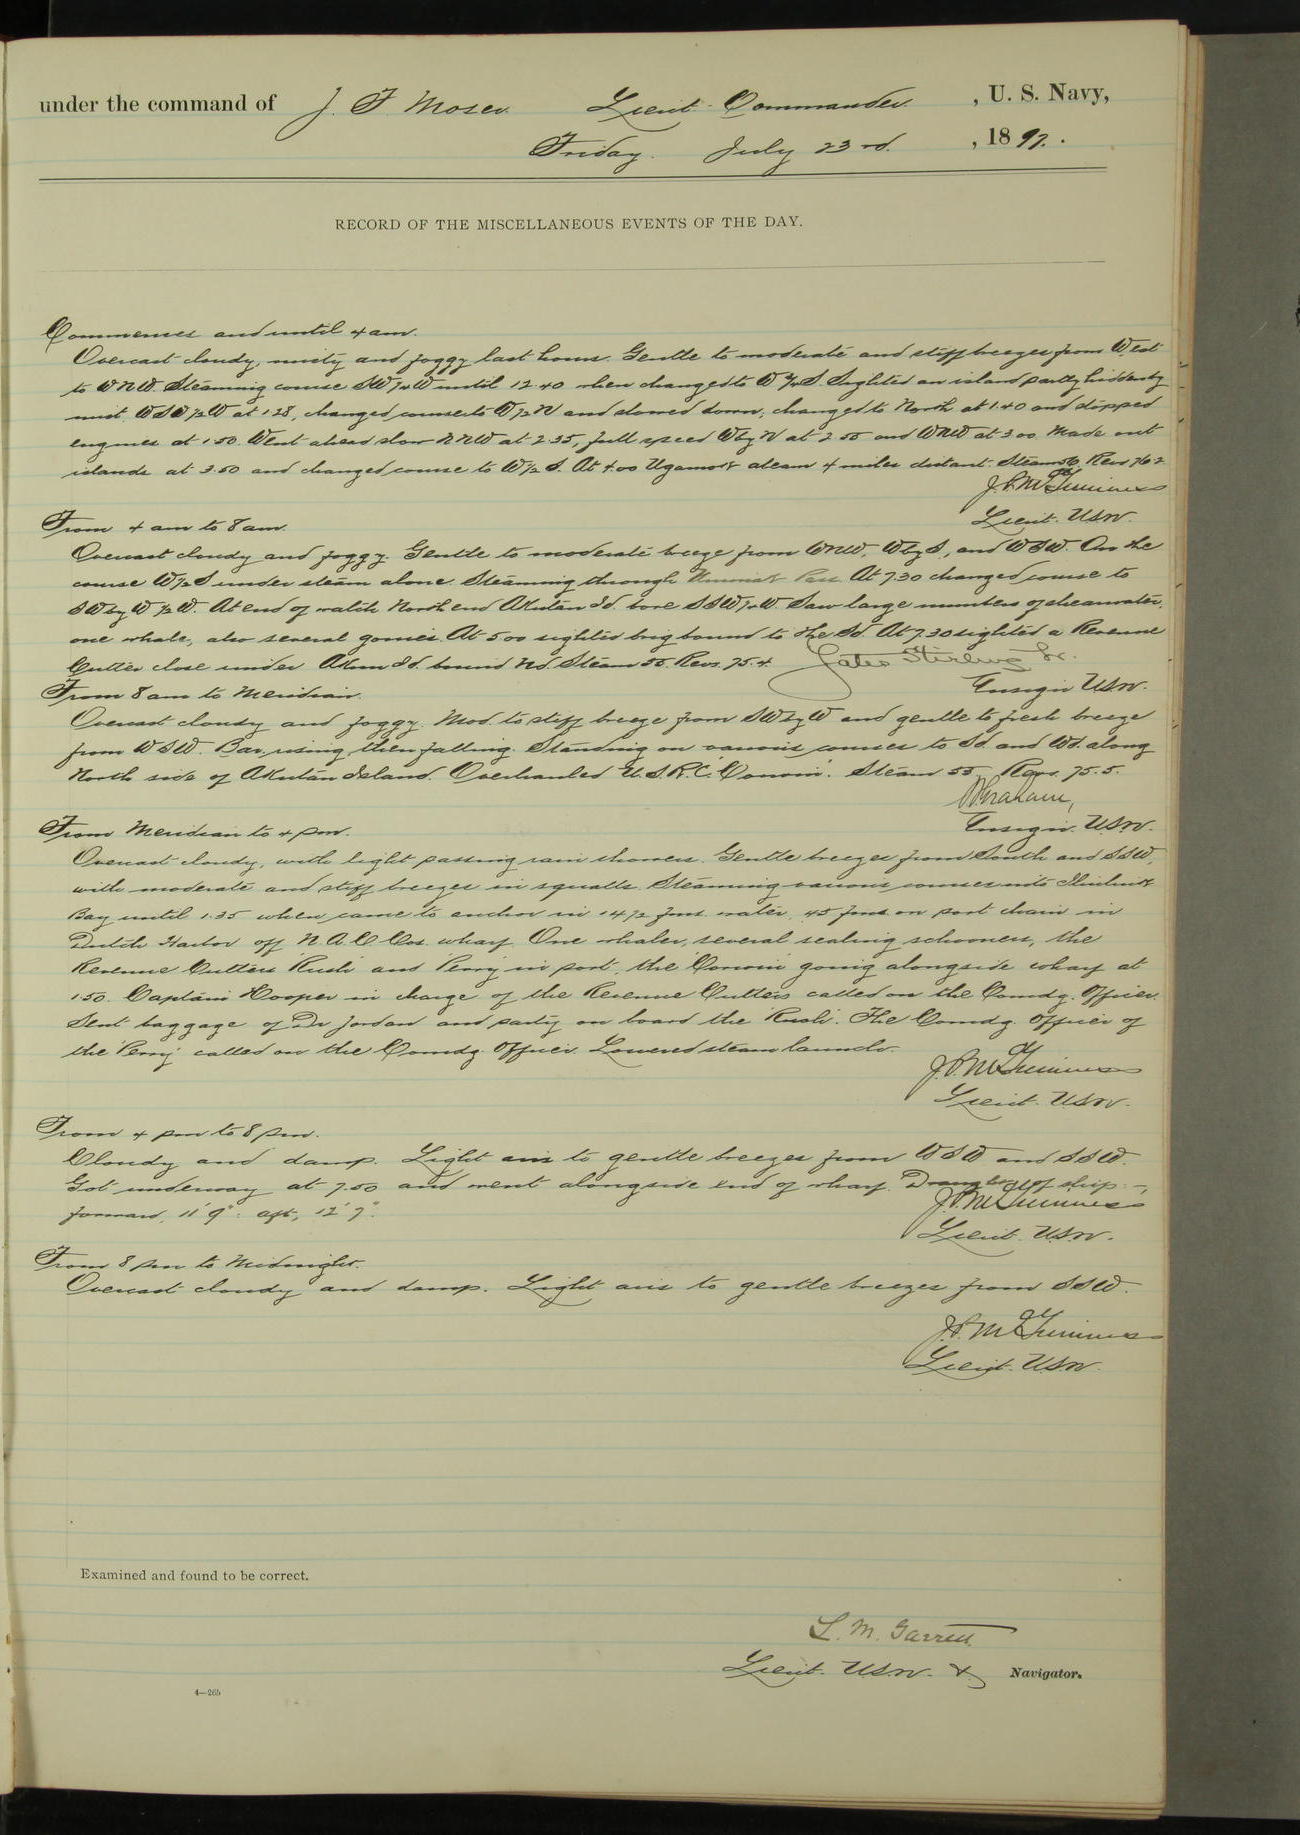 under the command of J. F. Moser Lieut. Commander , U. S. Navy,
Friday. July 23rd. , 1897.
RECORD OF THE MISCELLANEOUS EVENTS OF THE DAY.
Commences and until 4 am.
Overcast cloudy, misty and foggy last hour. Gentle to moderate and stiff breezes from West
to WNW. Steaming course SW 1/4 W until 12.40 when changed to W 3/4 S. Sighted an island partly hidden by
mist WSW 1/2 W at 1.28, changed course to W 1/2 N and slowed down; changed to North at 1.40 and stopped
engines at 1.50. Went ahead slow NNW at 2.35, full speed W by N at 2.55 and WNW at 3.00. Made out
islands at 3.50 and changed course to W 1/2 S. At 4.00 Ugamok abeam 4 miles distant. Steam 56 Revs 76.2
J. P. McGuinness
Lieut. USN.
From 4 am to 8 am.
Overcast cloudy and foggy. Gentle to moderate breeze from WNW, W by S, and WSW. On the
course W 1/2 S under steam alone. Steaming through Unimak Pass. At 7.30 changed course to
SW by W 1/2 W. At end of watch North end Akutan Id. bore SSW 1/4 W. Saw large numbers of shearwater,
one whale, also several gonies. At 5.00 sighted brig bound to the Sd. At 7.30 sighted a Revenue
Cutter close under Akun Id. bound Nd. Steam 55. Revs. 75.4. Yates Stirling Jr.
Ensign USN.
From 8 am to Meridian.
Overcast cloudy and foggy. Mod. to stiff breeze from SW by W and gentle to fresh breeze
from WSW. Bar. rising, then falling. Standing on various courses to Sd. and Wd. along
North side of Akutan Island. Overhauled U.S.R.C. "Corwin". Steam 55 Revs. 75.5.
Graham,
Ensign. USN.
From Meridian to 4 pm.
Overcast cloudy, with light passing rain showers. Gentle breezes from South and SSW,
with moderate and stiff breezes in squalls. Steaming various courses into Iliuliuk
Bay until 1.35 when came to anchor in 14 1/2 fms. water, 45 fms. on port chain in
Dutch Harbor off N.A.C.Cos. wharf. One whaler, several sealing schooners, the
Revenue Cutters "Rush" and "Perry" in port, the "Corwin" going alongside wharf at
1.50. Captain Hooper in charge of the Revenue Cutters called on the Comdg. Officer.
Sent baggage of Dr Jordan and party on board the "Rush". The Comdg. Officer of
the "Perry" called on the Comdg. Officer. Lowered steam launch.
J. P. McGuinness
Lieut. USN.
From 4 pm to 8 pm.
Cloudy and damp. Light airs to gentle breezes from WSW and SSW.
Got underway at 7.50 and went alongside end of wharf. Draught of ship:—
forward, 11' 9": aft, 12' 7".
J. P. McGuinness
Lieut. USN.
From 8 pm to Midnight.
Overcast cloudy and damp. Light airs to gentle breezes from SSW.
J. P. McGuinness
Lieut. USN.
Examined and found to be correct.
L. M. Garrett
Lieut. USN. & Navigator.
4—265